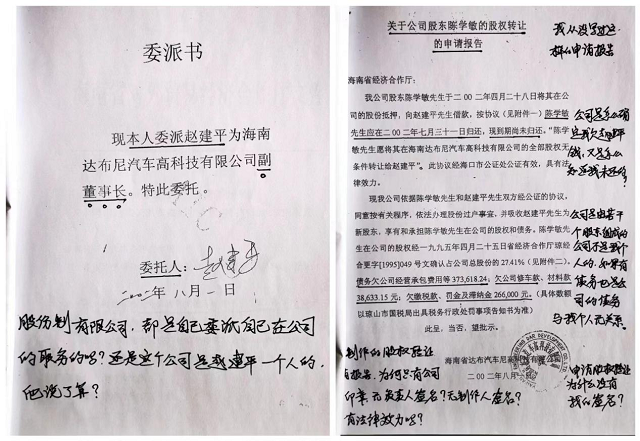 委派书
现本人委派赵建平为海南
达布尼汽车高科技有限公司副
董事长。特此委托。
委托人：赵建平
二00二年八月一日
股份制有限公司，都是自己委派自己在公司
的职务的吗？还是这个公司是赵建平一个人的，
他说了算？
关于公司股东陈学敏的股权转让
的申请报告
我从没写过这
样的申请报告
海南省经济合作厅：
我公司股东陈学敏先生于二00二年四月二十八日将其在公
司的股份抵押，向赵建平先生借款，按协议（见附件一）陈学敏
先生应在二00二年七月三十一日归还，现到期尚未归还，“陈学
敏先生愿将其在海南达布尼汽车高科技有限公司的全部股权无
条件转让给赵建平”。此协议经海口市公证处公证有效，具有法
律效力。
现我公司依据陈学敏先生和赵建平先生双方经公证的协议，
同意按有关程序，依法办理股份过户事宜，并吸收赵建平先生为
新股东，享有和承担陈学敏先生在公司的股权和债务。陈学敏先
生在公司的股权经一九九五年四月二十五日省经济合作厅琼经
合更字[1995]049号文确认占公司总股份的27.41%（见附件二）。
债务欠公司经营承包费用等 373,618.24，欠公司修车款、材料款
38,633.15元；欠缴税款、罚金及滞纳金 266,000元。（具体数额
以琼山市国税局出具税务行政处罚事项告知书为准）
此呈，当否，望批示。
海南省达布尼汽车高科技有限公司
二00二年八月
公司是怎么确
定我欠赵建平
钱，又是怎么
知道我未还的？
公司是由若干
个股东组成的
公司不是我个
人的，如果有
债务也是公
司的债务
与我个人无关系。
制作的股权转让
报告，为何只有公司
印章，无负责人签名？无制作人签名？
有法律效力吗？
申请股权转让
为什么没有
我的签名？